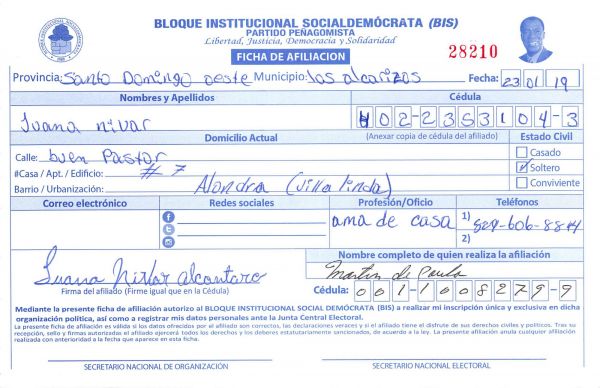 BLOQUE INSTITUCIONAL SOCIALDEMÓCRATA (BIS)
PARTIDO PEÑAGOMISTA
Libertad, Justicia, Democracia y Solidaridad
FICHA DE AFILIACION
28210
Provincia: Santo Domingo oeste Municipio: los alcarizos Fecha: 23 01 19
Nombres y Apellidos Cédula
Juana nivar 402-2353104-3
Domicilio Actual (Anexar copia de cédula del afiliado) Estado Civil
Calle: buen Pastor Casado
#Casa / Apt. / Edificio: # 7 Soltero
Barrio / Urbanización: Alondra (villa linda) Conviviente
Correo electrónico Redes sociales Profesión/Oficio Teléfonos
ama de casa 1) 829-606-8814
2)
Nombre completo de quien realiza la afiliación
Juana Nivar alcantara Martin de Paula
Firma del afiliado (Firme igual que en la Cédula) Cédula: 001-1008279-9
Mediante la presente ficha de afiliación autorizo al BLOQUE INSTITUCIONAL SOCIAL DEMÓCRATA (BIS) a realizar mi inscripción única y exclusiva en dicha
organización política, así como a registrar mis datos personales ante la Junta Central Electoral.
La presente ficha de afiliación es válida si los datos ofrecidos por el afiliado son correctos, las declaraciones veraces y si el afiliado tiene el disfrute de sus derechos civiles y políticos. Tras su
recepción, sello y firmas autorizadas el afiliado ejercerá todos los derechos y los deberes estatutariamente sancionados, de acuerdo a la ley. La presente afiliación anula cualquier afiliación
realizada con anterioridad a la fecha que aparece en esta ficha.
SECRETARIO NACIONAL DE ORGANIZACIÓN SECRETARIO NACIONAL ELECTORAL